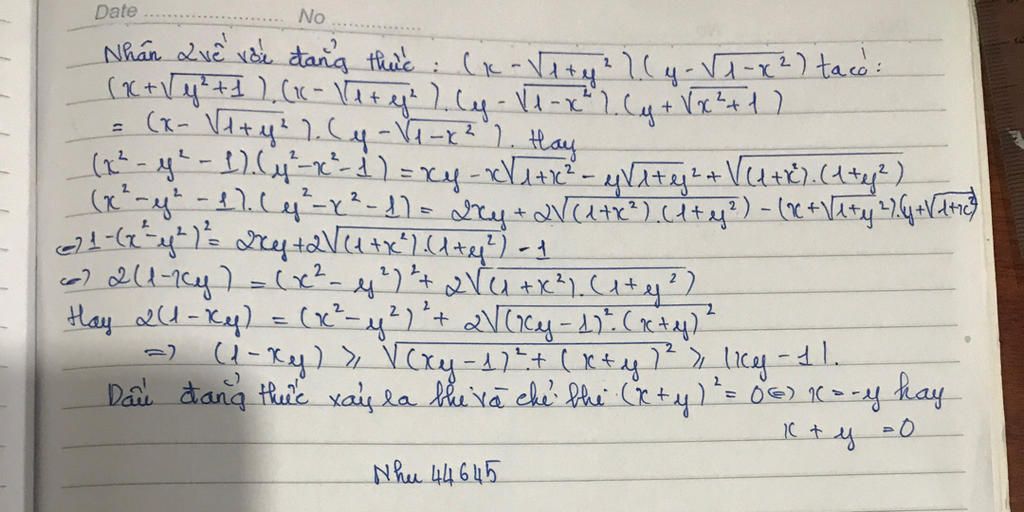 Date No
Nhân 2 vế với đẳng thức : (x - √(1+y²)).(y - √(1-x²)) ta có :
(x+√(y²+1)).(x - √(1+y²)).(y - √(1-x²)).(y+√(x²+1))
= (x - √(1+y²)).(y - √(1-x²)). Hay
(x² - y² - 1).(y² - x² - 1) = xy - x√(1+x²) - y√(1+y²) + √((1+x²).(1+y²))
(x² - y² - 1).(y² - x² - 1) = 2xy + 2√((1+x²).(1+y²)) - (x+√(1+y²)).(y+√(1+x²))
⇔ 1-(x²-y²)² = 2xy+2√((1+x²).(1+y²)) - 1
⇔ 2(1-xy) = (x² - y²)² + 2√((1+x²).(1+y²))
Hay 2(1-xy) = (x²-y²)² + 2√((xy-1)².(x+y)²)
⇒ (1-xy) ⩾ √((xy-1)²+(x+y)²) ⩾ |xy-1|.
Dấu đẳng thức xảy ra khi và chỉ khi (x+y)² = 0 ⇔ x = -y hay
x + y = 0
Như 44645